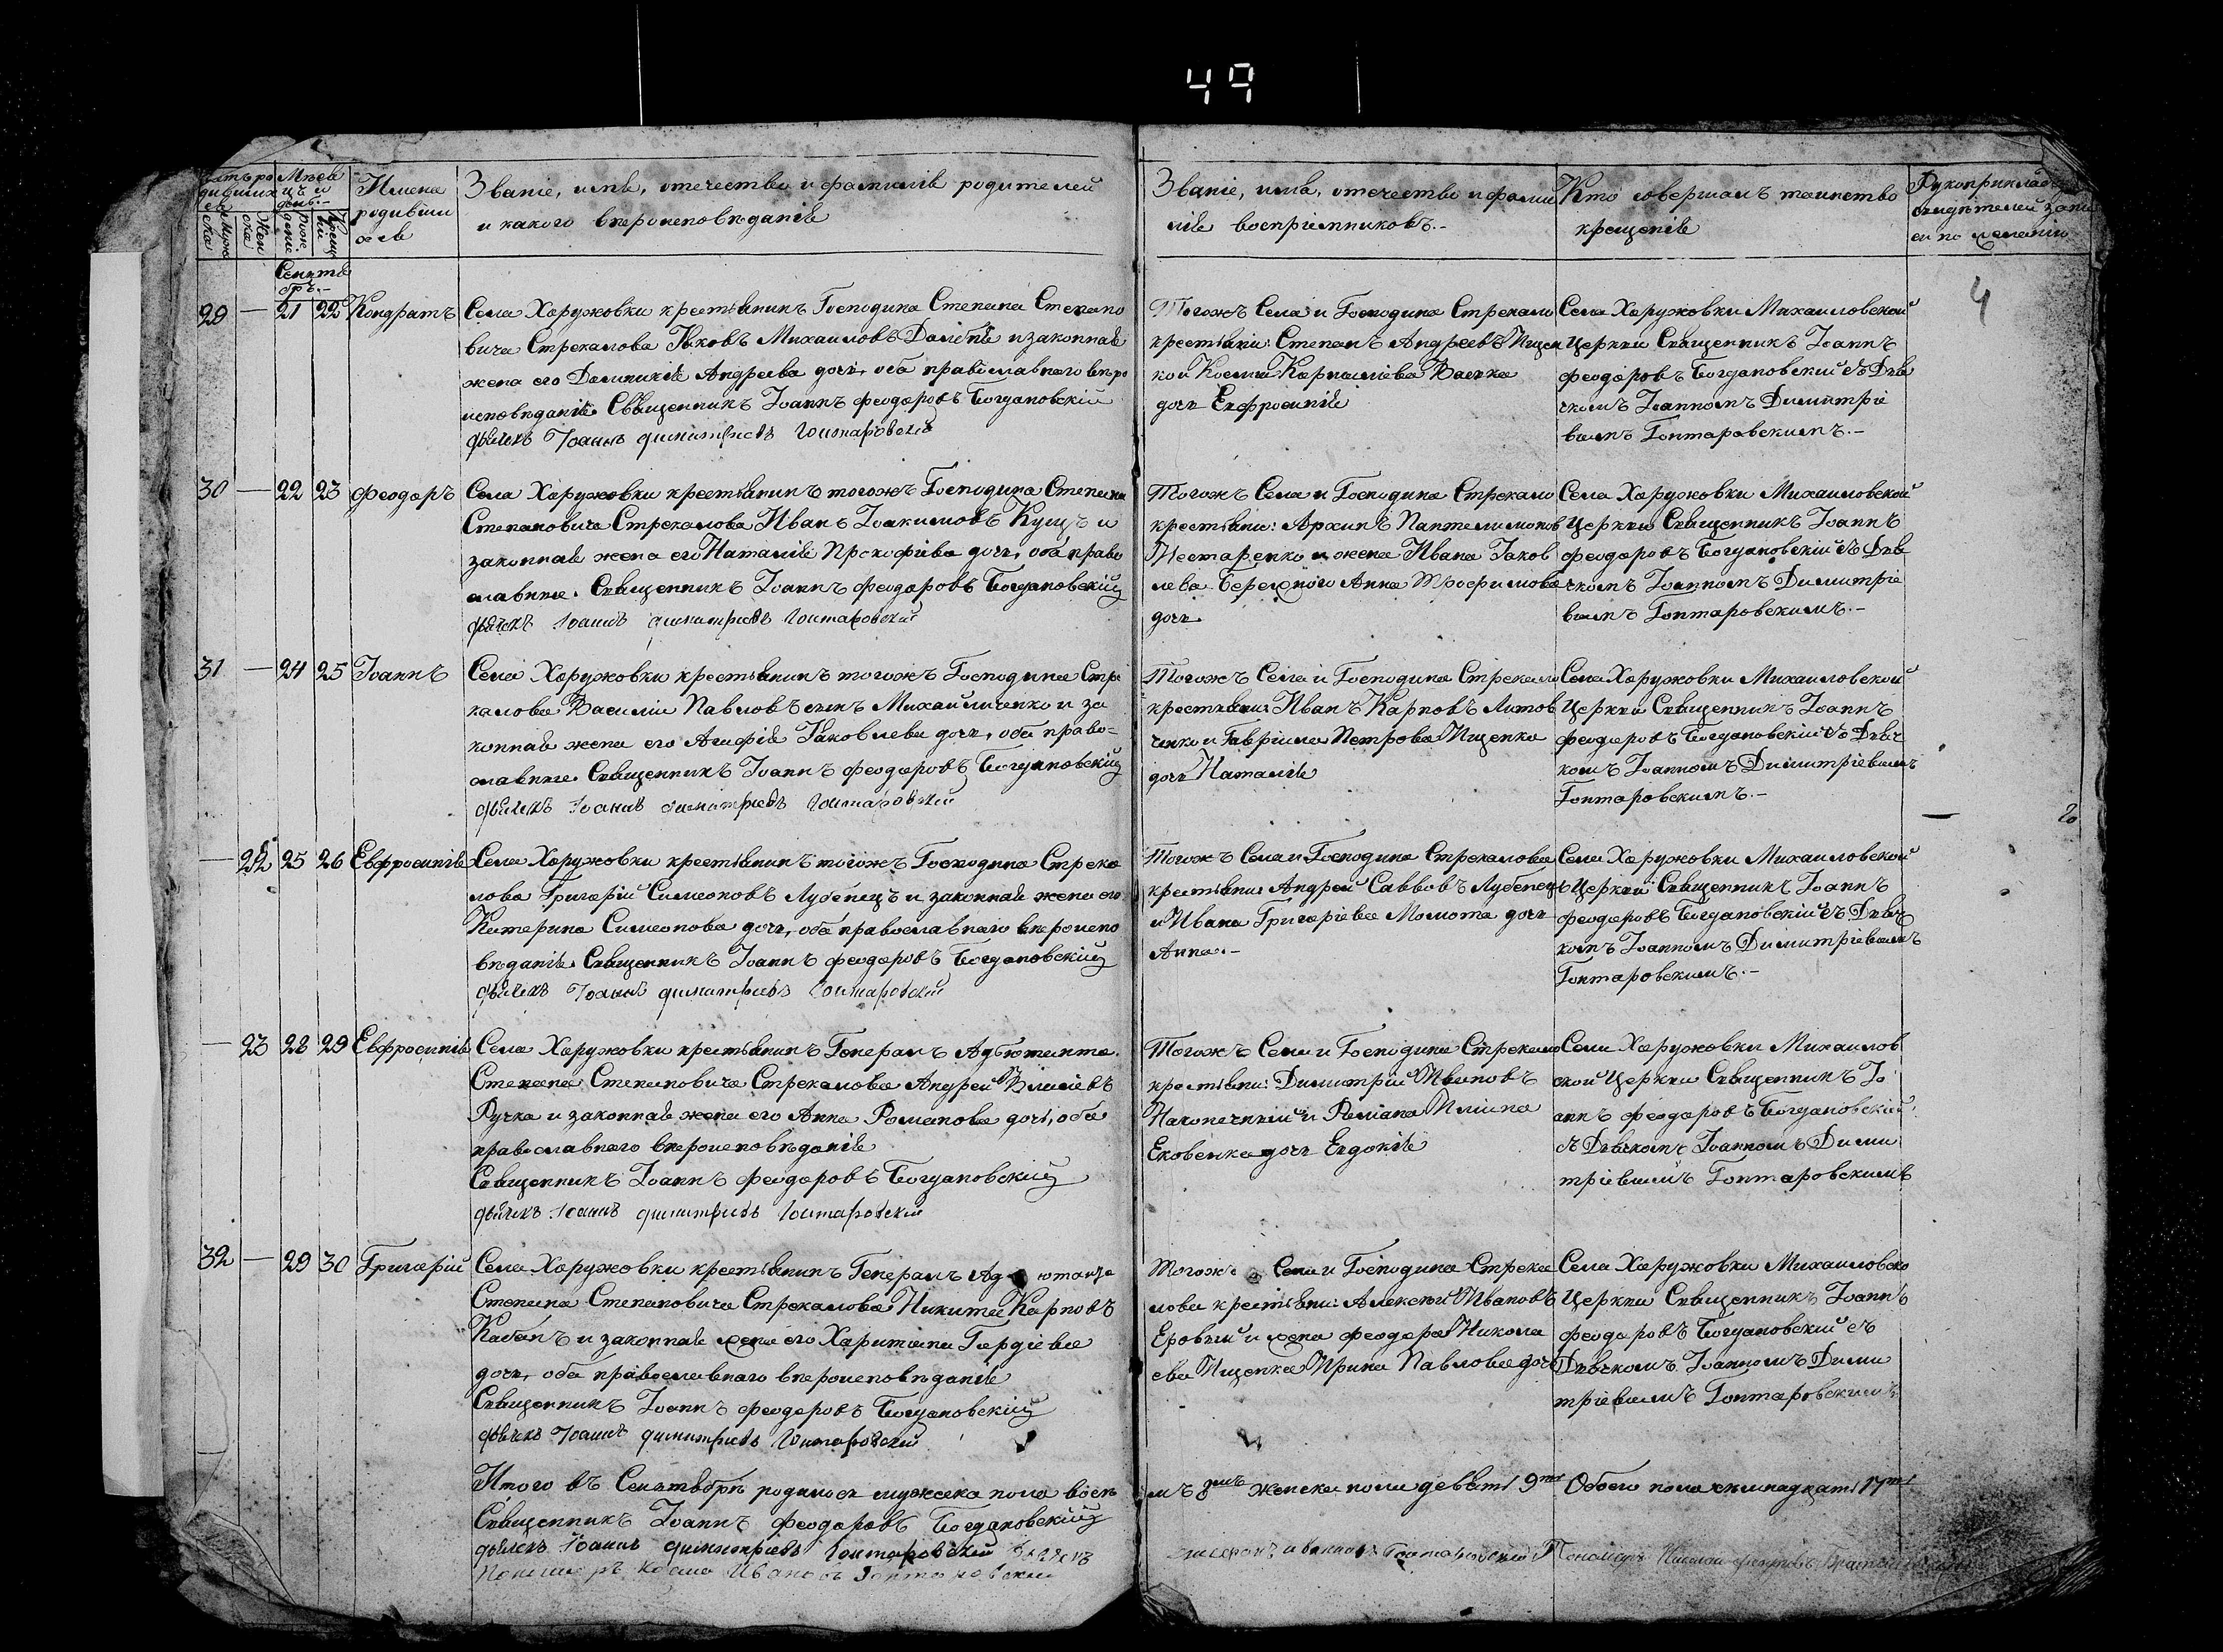 49
Имена
родивши
хся
Званіе, имя, отечество и фамилія родителей
и какого вѣроисповѣданія
Званіе, имя, отечество и фами
лія воспріемниковъ.-
Кто совершалъ таинство
крещенія
Рукоприклад
свидѣтелей запи
си по желанію
Сентя
брь.-
4
29 — 21 22 Кондратъ
Села Харужовки крестьянинъ Господина Степана Степано
вича Стрекалова Яковъ Михаиловъ и законная
жена его Домникія Андреева дочь, оба православнаго вѣро
исповѣданія Священникъ Іоаннъ Феодоровъ Богдановскій
дьячекъ Іоаннъ Димитріевъ Гонтаровскій
Тогожъ Села и Господина Стрекало
крестьяни: Степанъ Андреевъ Ищен
ко и Космы Карпа
дочь Евфросинія
Села Харужовки Михаиловской
Церкви Священникъ Іоаннъ
Феодоровъ Богдановскій съ Дья
чкомъ Іоанномъ Димитріе
вымъ Гонтаровскимъ.-
30 — 22 23 Феодоръ
Села Харужовки крестьянинъ тогожъ Господина Степана
Степановича Стрекалова Иванъ Іоакимовъ Кущъ и
законная жена его Наталія Прокофіева дочь, оба право
славные. Священникъ Іоаннъ Феодоровъ Богдановскій
дьячекъ Іоаннъ Димитріевъ Гонтаровскій
Тогожъ Села и Господина Стрекало
крестьяни: Архипъ Пантелимонов
Шестаренко и жена Ивана Яков
лева Бережного Анна Трофимова
дочь
Села Харужовки Михаиловской
Церкви Священникъ Іоаннъ
Феодоровъ Богдановскій съ Дья
чкомъ Іоанномъ Димитріе
вымъ Гонтаровскимъ.-
31 — 24 25 Іоаннъ
Села Харужовки крестьянинъ тогожъ Господина Стре
калова Василій Павловъ сынъ Михайличенко и за
конная жена его Агафія Яковлева дочь, оба право=
славные. Священникъ Іоаннъ Феодоровъ Богдановскій
дьячекъ Іоаннъ Димитріевъ Гонтаровскій
Тогожъ Села и Господина Стрекало
крестьяни: Иванъ Карповъ Литов
ченко и Гавріила Петрова Ищенко
дочь Наталія
Села Харужовки Михаиловской
Церкви Священникъ Іоаннъ
Феодоровъ Богдановскій съ Дьяч
комъ Іоанномъ Димитріевымъ
Гонтаровскимъ.-
— 22 25 26 Евфросинія
Села Харужовки крестьянинъ тогожъ Господина Стрека
лова Григорій Симеоновъ Лубенецъ и законная жена его
Катерина Симеонова дочь, оба православнаго вѣроиспо
вѣданія. Священникъ Іоаннъ Феодоровъ Богдановскій
дьячекъ Іоаннъ Димитріевъ Гонтаровскій
Тогожъ Села и Господина Стрекалова
крестьяни: Андрей Саввовъ Лубенецъ
и Ивана Григоріева Момота дочь
Анна.-
Села Харужовки Михаиловской
Церкви Священникъ Іоаннъ
Феодоровъ Богдановскій съ Дьяч
комъ Іоанномъ Димитріевымъ
Гонтаровскимъ.-
— 23 28 29 Евфросинія
Села Харужовки крестьянинъ Генералъ Адъютанта
Степана Степановича Стрекалова Андрей
Ручка и законная жена его Анна Романова дочь, оба
православнаго вѣроисповѣданія
Священникъ Іоаннъ Феодоровъ Богдановскій
дьячекъ Іоаннъ Димитріевъ Гонтаровскій
Тогожъ Села и Господина Стрекало
крестьяни: Димитрій Ивановъ
Наконечный и Ильина
Яковенка дочь Евдокія
Села Харужовки Михаилов
ской Церкви Священникъ Іо
аннъ Феодоровъ Богдановскій
съ Дьячкомъ Іоанномъ Дими
тріевымъ Гонтаровскимъ
32 — 29 30 Григорій
Села Харужовки крестьянинъ Генералъ Адъютанта
Степана Степановича Стрекалова Никита Карповъ
Кабанъ и законная жена его Харитина Гордіева
дочь, оба православнаго вѣроисповѣданія
Священникъ Іоаннъ Феодоровъ Богдановскій
дьячекъ Іоаннъ Димитріевъ Гонтаровскій
Тогожъ Села и Господина Стрека
лова крестьяни: Алексѣй Ивановъ
и жена Феодора Никола
ева Ищенка Ирина Павлова дочь
Села Харужовки Михаиловско
Церкви Священникъ Іоаннъ
Феодоровъ Богдановскій съ
Дьячкомъ Іоанномъ Дими
тріевымъ Гонтаровскимъ
Итого въ Сентябрѣ родилось мужска пола восе
мъ 8мъ женска пола девять 9ть Обоего пола семнадцать 17ть
Священникъ Іоаннъ Феодоровъ Богдановскій
дьячекъ Іоаннъ Димитріевъ Гонтаровскій
Пономаръ Косма Ивановъ Гонтаровскій
Пономарь